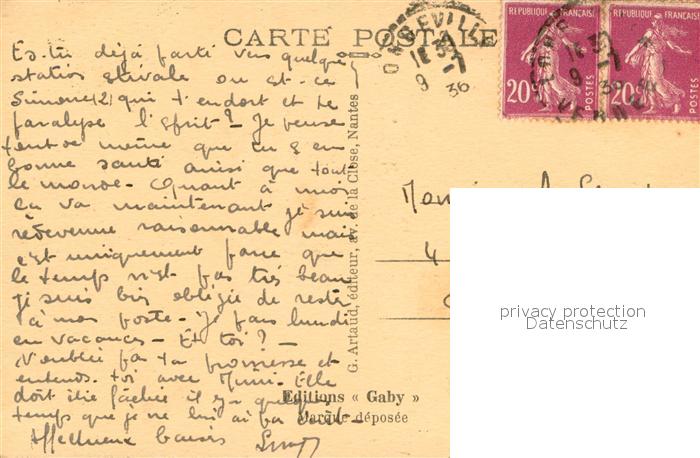 CARTE POSTALE
Es-tu déjà parti vers quelque
station estivale ou est-ce
Simone (2) qui t'endort et te
paralyse l'esprit? Je pense
tout de même que tu es en
bonne santé ainsi que tout
le monde. Quant à moi
ça va maintenant je suis
redevenue raisonnable mais
c'est uniquement parce que
le temps n'est pas très beau
je suis bien obligée de rester
à mon poste. Je pars lundi
en vacances - Et toi? -
N'oublie pas ta promesse et
entends-toi avec Mimi. Elle
doit être fâchée il y a quelque
temps que je ne lui ai pas écrit -
Affectueux baisers
G. Artaud, éditeur, av. de la Close, Nantes
Editions « Gaby »
Marque déposée
RÉPUBLIQUE FRANÇAISE
20c
POSTES
RÉPUBLIQUE FRANÇAISE
20c
POSTES
Monsieur
4
privacy protection
Datenschutz